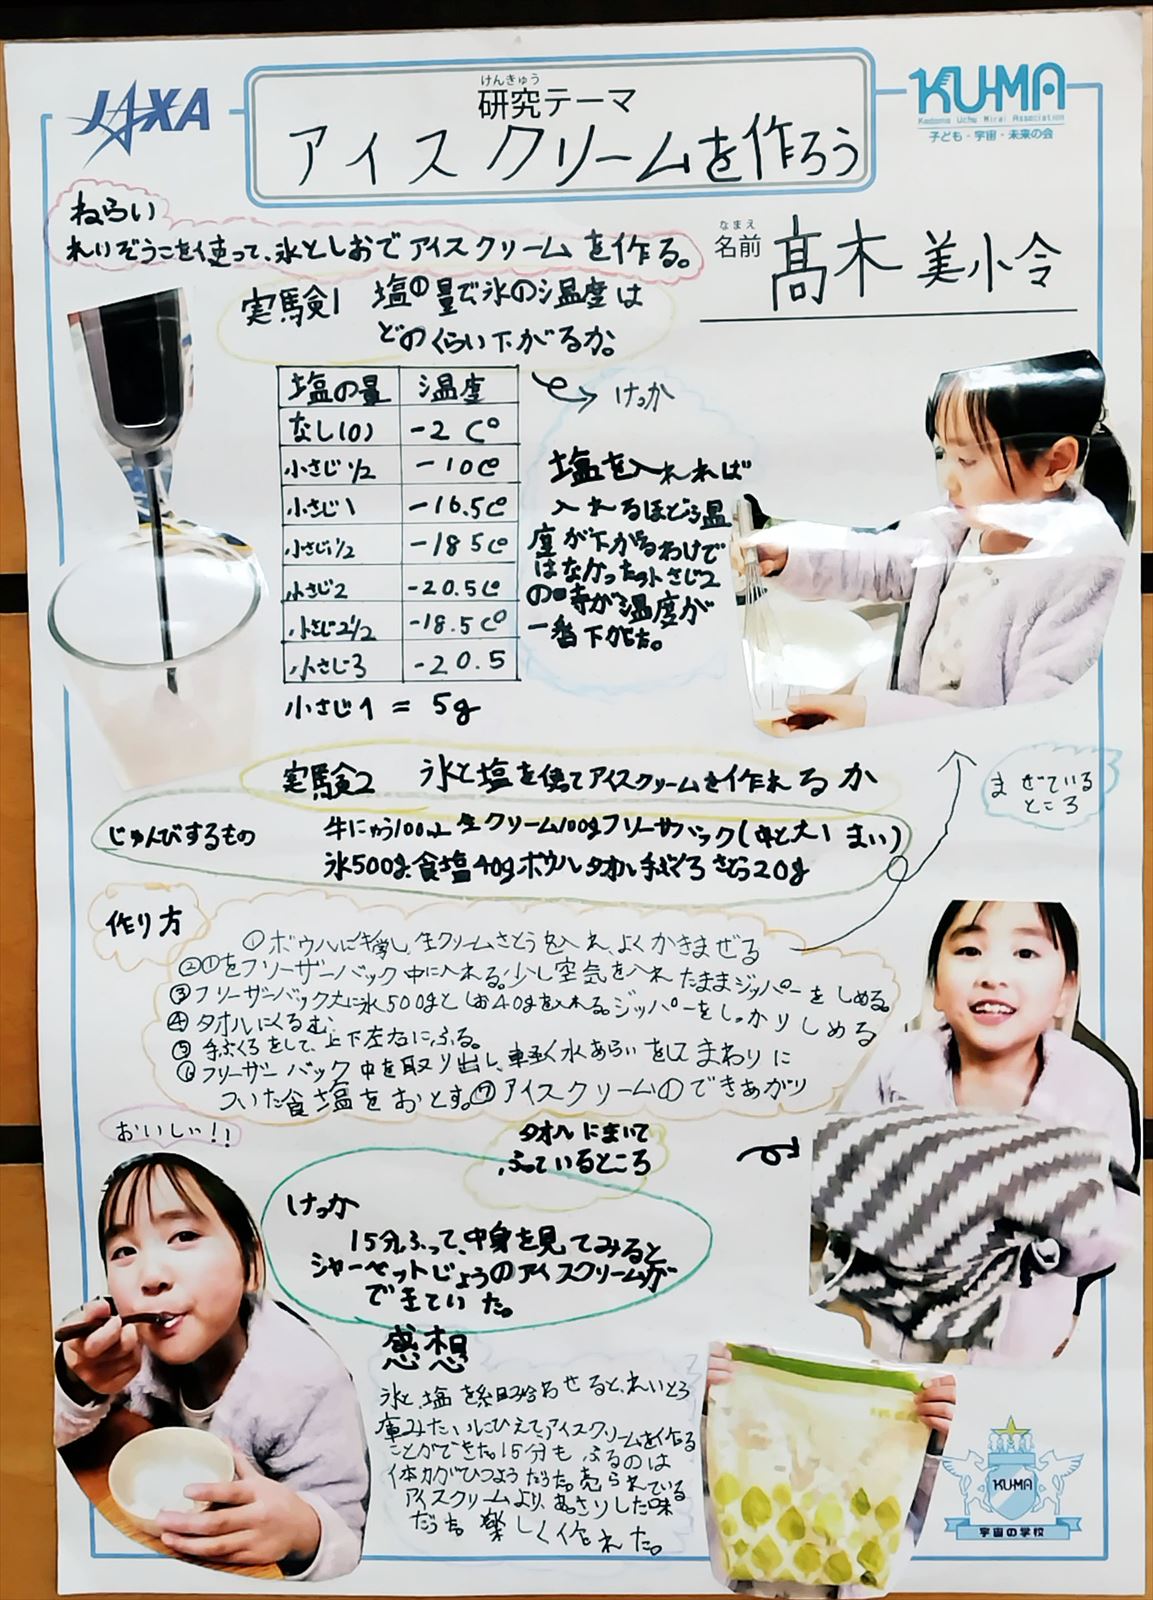 JAXA
けんきゅう
研究テーマ
アイスクリームを作ろう
KU-MA
Kodomo Uchu Mirai Association
子ども・宇宙・未来の会
ねらい
れいぞうこを使って、氷としおでアイスクリームを作る。
なまえ
名前 髙木 美小令
実験1 塩の量で氷の温度は
どのくらい下がるか。
塩の量 温度
なし(0) -2 C°
小さじ1/2 -10C°
小さじ1 -16.5C°
小さじ1 1/2 -18.5C°
小さじ2 -20.5C°
小さじ2 1/2 -18.5C°
小さじ3 -20.5
小さじ1 = 5g
けっか
塩を入れれば
入れるほど温
度が下がるわけで
はなかった。小さじ2
の時が温度が
一番下がた。
実験2 氷と塩を使てアイスクリームを作れるか
まぜている
ところ
じゅんびするもの
牛にゅう100mL 生クリーム100gフリーザバック(中と大1まい)
氷500g食塩40gボウルタオル手ぶくろさとう20g
作り方
①ボウルに牛乳、生クリームさとうを入れ、よくかきまぜる
②①をフリーザーバック中に入れる。少し空気を入れたままジッパーをしめる。
③フリーザーバック大に氷500gとしお40gを入れる。ジッパーをしっかりしめる
④タオルにくるむ。
⑤手ぶくろをして、上下左右にふる。
⑥フリーザーバック中を取り出し、軽く水あらいをしてまわりに
ついた食塩をおとす。⑦アイスクリームのできあがり
おいしい!!
タオルにまいて
ふっているところ
けっか
15分ふって、中身を見てみると
シャーベットじょうのアイスクリームが
できていた。
感想
氷と塩を組み合わせると、れいとう
庫みたいにひえてアイスクリームを作る
ことができた。15分もふるのは
体力がひつようだった。売られている
アイスクリームより、あっさりした味
だった。楽しく作れた。
KU-MA
宇宙の学校